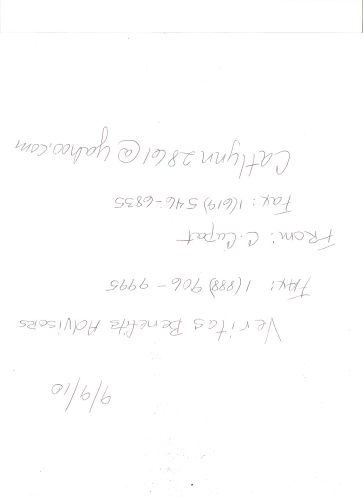 9/9/10
Veritas Benefits Advisors
FAX: 1(888) 906-9995
FROM: C. Cupat
Fax: 1(619) 546-6835
Catlynn2861@yahoo.com